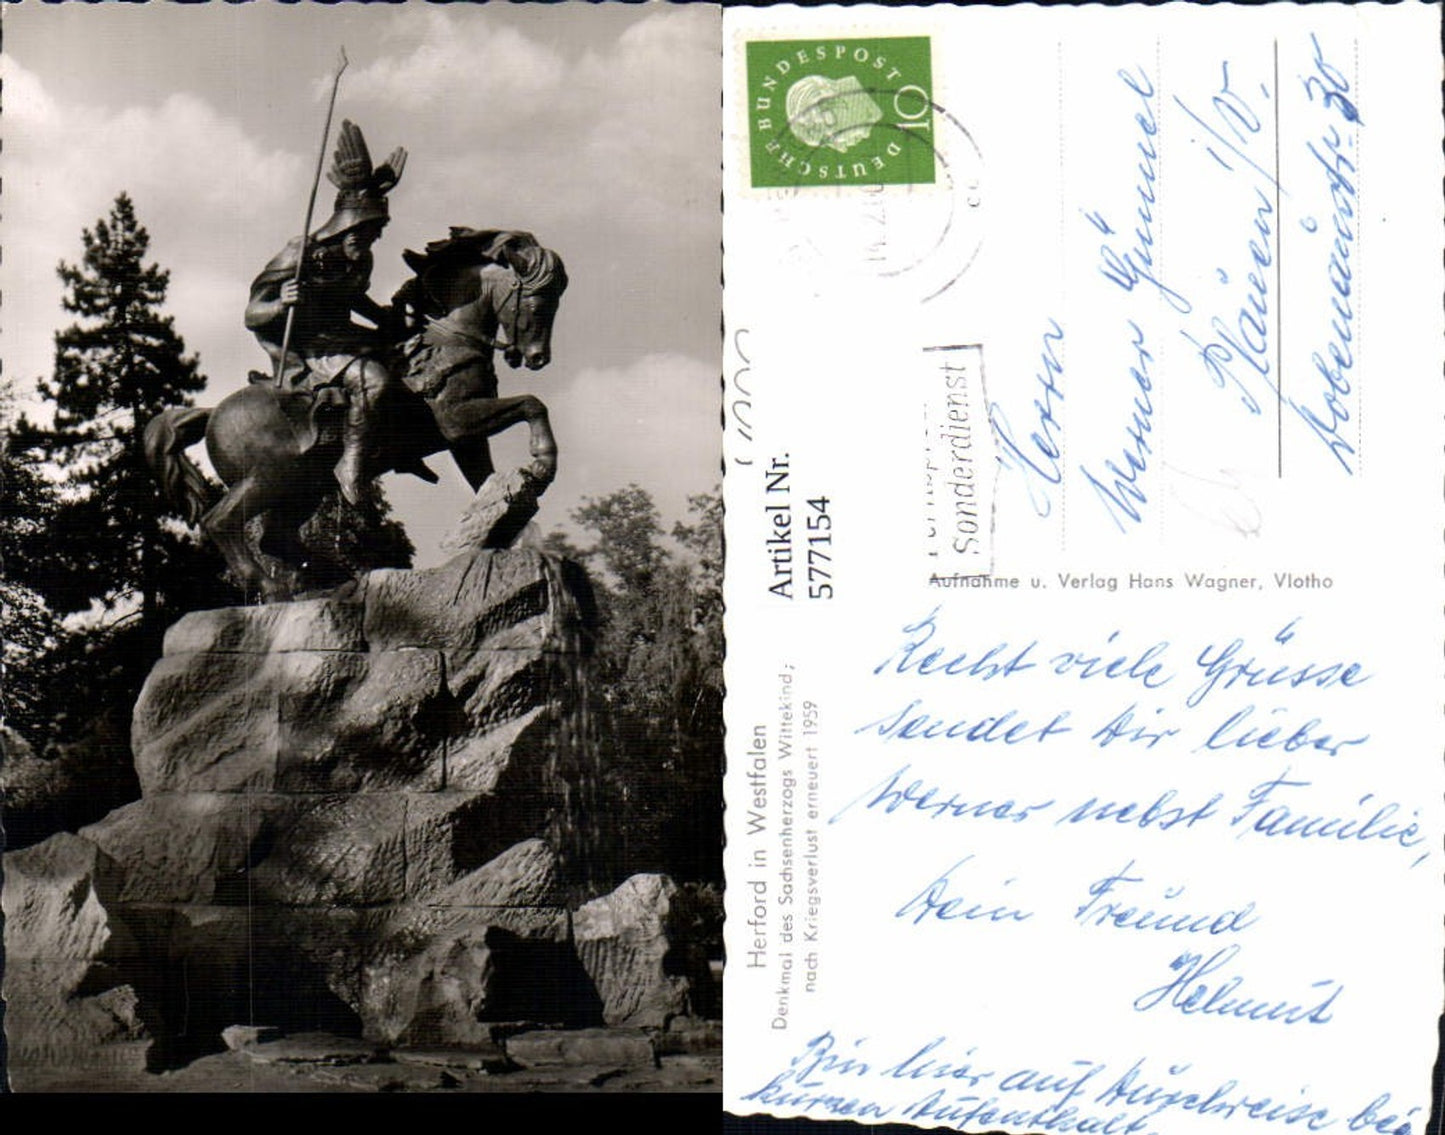 DEUTSCHE BUNDESPOST
10
14.2.60
Sonderdienst
Herrn
Werner Gümmel
Plauen i/V.
Dobenaustr. 30
Artikel Nr.
577154
Aufnahme u. Verlag Hans Wagner, Vlotho
Herford in Westfalen
Denkmal des Sachsenherzogs Wittekind;
nach Kriegsverlust erneuert 1959
Recht viele Grüsse
sendet Dir lieber
Werner nebst Familie,
Dein Freund
Helmut
Bin hier auf Durchreise bei
kurzen Aufenthalt.